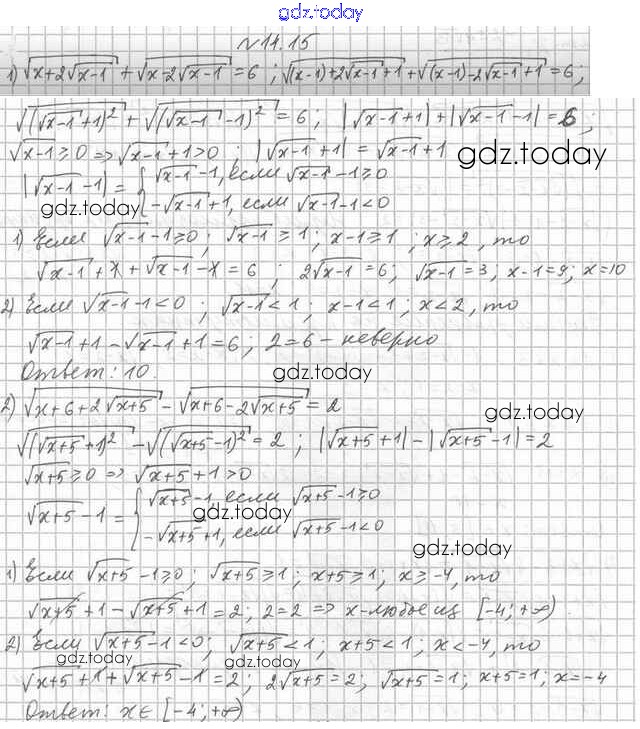 gdz.today
№11.15
1) √(x+2√(x-1)) + √(x-2√(x-1)) = 6 ; √((x-1)+2√(x-1)+1) + √((x-1)-2√(x-1)+1) = 6;
√((√(x-1)+1)²) + √((√(x-1)-1)²) = 6; |√(x-1)+1| + |√(x-1)-1| = 6;
√(x-1) ≥ 0 => √(x-1)+1>0 ; |√(x-1)+1| = √(x-1)+1 gdz.today
|√(x-1)-1| = { √(x-1)-1, если √(x-1)-1≥0
gdz.today -√(x-1)+1, если √(x-1)-1<0
1) Если √(x-1)-1≥0; √(x-1) ≥ 1; x-1≥1 ; x≥2, то
√(x-1)+1+√(x-1)-1 = 6 ; 2√(x-1) = 6; √(x-1) = 3; x-1=9; x=10
2) Если √(x-1)-1<0 ; √(x-1)<1; x-1<1; x<2, то
√(x-1)+1-√(x-1)+1=6; 2=6 - неверно
Ответ: 10. gdz.today
2) √(x+6+2√(x+5)) - √(x+6-2√(x+5)) = 2 gdz.today
√((√(x+5)+1)²) - √((√(x+5)-1)²) = 2 ; |√(x+5)+1| - |√(x+5)-1| = 2
√(x+5) ≥ 0 => √(x+5)+1>0
√(x+5)-1 = { √(x+5)-1, если √(x+5)-1≥0
gdz.today
-√(x+5)+1, если √(x+5)-1<0
gdz.today
1) Если √(x+5)-1≥0; √(x+5)≥1; x+5≥1; x≥-4, то
√(x+5)+1-√(x+5)+1=2; 2=2 => x-любое из [-4;+∞)
2) Если √(x+5)-1<0; √(x+5)<1; x+5<1; x<-4, то
gdz.today gdz.today
√(x+5)+1+√(x+5)-1=2; 2√(x+5)=2; √(x+5)=1; x+5=1; x=-4
Ответ: x∈[-4;+∞)